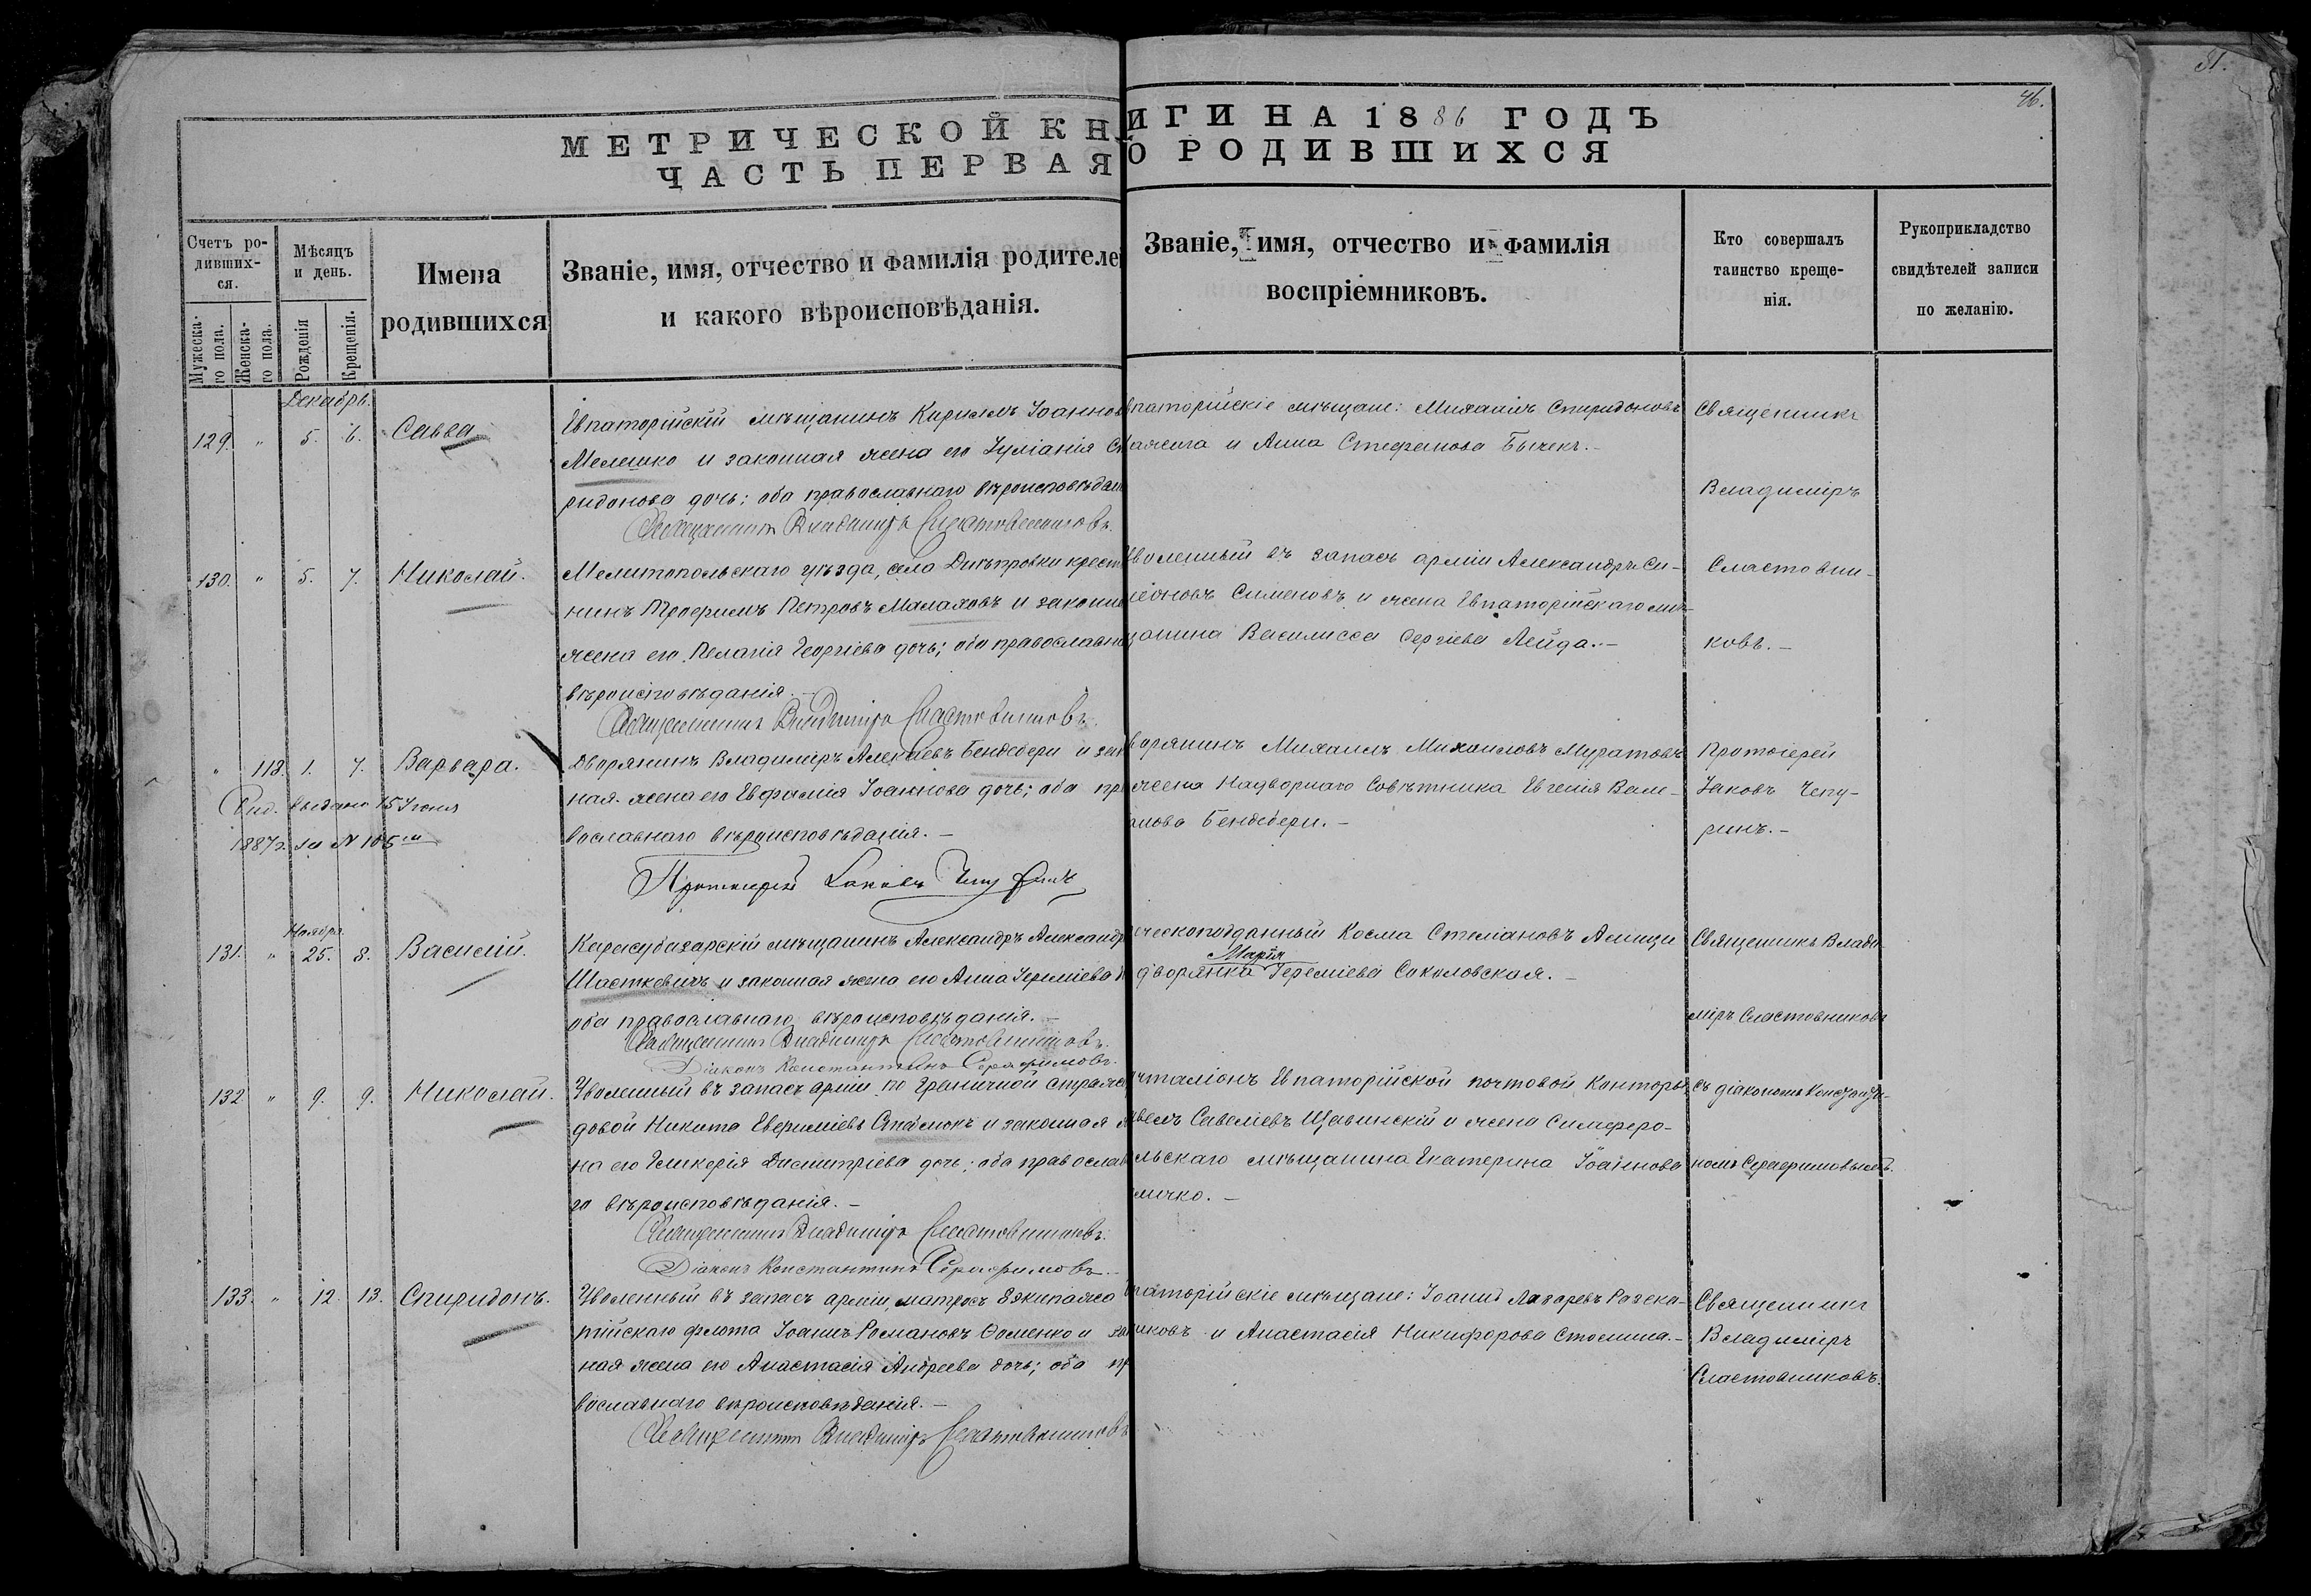 81.
46.
МЕТРИЧЕСКОЙ КНИГИ НА 1886 ГОДЪ
ЧАСТЬ ПЕРВАЯ О РОДИВШИХСЯ
Счетъ ро-
дивших-
ся.
Мужеска-
го пола.
Женска-
го пола.
Мѣсяцъ
и день.
Рожденія
Крещенія.
Имена
родившихся
Званіе, имя, отчество и фамилія родителей
и какого вѣроисповѣданія.
Званіе, имя, отчество и фамилія
воспріемниковъ.
Кто совершалъ
таинство креще-
нія.
Рукоприкладство
свидѣтелей записи
по желанію.
Декабрь.
129. " 5. 6. Савва
Евпаторійскій мѣщанинъ Кириллъ Іоаннов
Мелешко и законная жена его Іуліанія Сп
ридонова дочь; оба православнаго вѣроисповѣдан
Священникъ Владиміръ Сластовниковъ.
впаторійскіе мѣщане: Михаилъ Спиридоновъ
и Анна Стефанова Бычекъ.-
Священникъ
Владиміръ
130. " 5. 7. Николай.
Мелитопольскаго уѣзда, села Днѣпровки крест
нинъ Трофимъ Петровъ Малаховъ и законн
жена его Пелагія Георгіева дочь; оба православн
вѣроисповѣданія.-
Священникъ Владиміръ Сластовниковъ.
воленный въ запасъ арміи Александръ Си-
меоновъ Сименовъ и жена Евпаторійскаго мѣ-
щанина Василисса Сергіева Лейда.-
Сластовни-
ковъ.-
" 113. 1. 7. Варвара.
выдано 15 Іюня
1887г. за № 105
Дворянинъ Владиміръ Алексѣевъ Бендебери и зак
ная жена его Евфимія Іоаннова дочь; оба пр
вославнаго вѣроисповѣданія.-
Протоіерей Іаковъ Чепуринъ
ворянинъ Михаилъ Михаиловъ Муратовъ
жена Надворнаго Совѣтника Евгенія
Бендебери.-
Протоіерей
Іаковъ Чепу-
ринъ.-
Ноября
131. " 25. 8. Василій.
Карасубазарскій мѣщанинъ Александръ Александр
Шасткевичъ и законная жена его Анна Іереміева
оба православнаго вѣроисповѣданія.-
Священникъ Владиміръ Сластовниковъ.
Діаконъ Константинъ Серафимовъ.
ческоподданный Косма Стеліановъ
Марія
дворянка Іереміева Соколовская.-
Священникъ Влади
міръ Сластовниковъ
132 " 9. 9. Николай.
Уволенный въ запасъ арміи по граничной страж
довой Никита Евфиміевъ и законная
на его Гликерія Димитріева дочь; оба православ
го вѣроисповѣданія.-
Священникъ Владиміръ Сластовниковъ.
Діаконъ Константинъ Серафимовъ.-
чталіонъ Евпаторійской почтовой Конторы
Савеліевъ Щавинскій и жена Симферо-
льскаго мѣщанина Екатерина Іоаннова
съ діакономъ Константи-
номъ Серафимовымъ.
133. " 12. 13. Спиридонъ.
Уволенный въ запасъ арміи, матросъ 8 экипажа
тійскаго флота Іоаннъ Романовъ Фоменко и зак
ная жена его Анастасія Андреева дочь; оба пр
вославнаго вѣроисповѣданія.-
Священникъ Владиміръ Сластовниковъ
паторійскіе мѣщане: Іоаннъ Лазаревъ
и Анастасія Никифорова Стоянина.-
Священникъ
Владиміръ
Сластовниковъ.